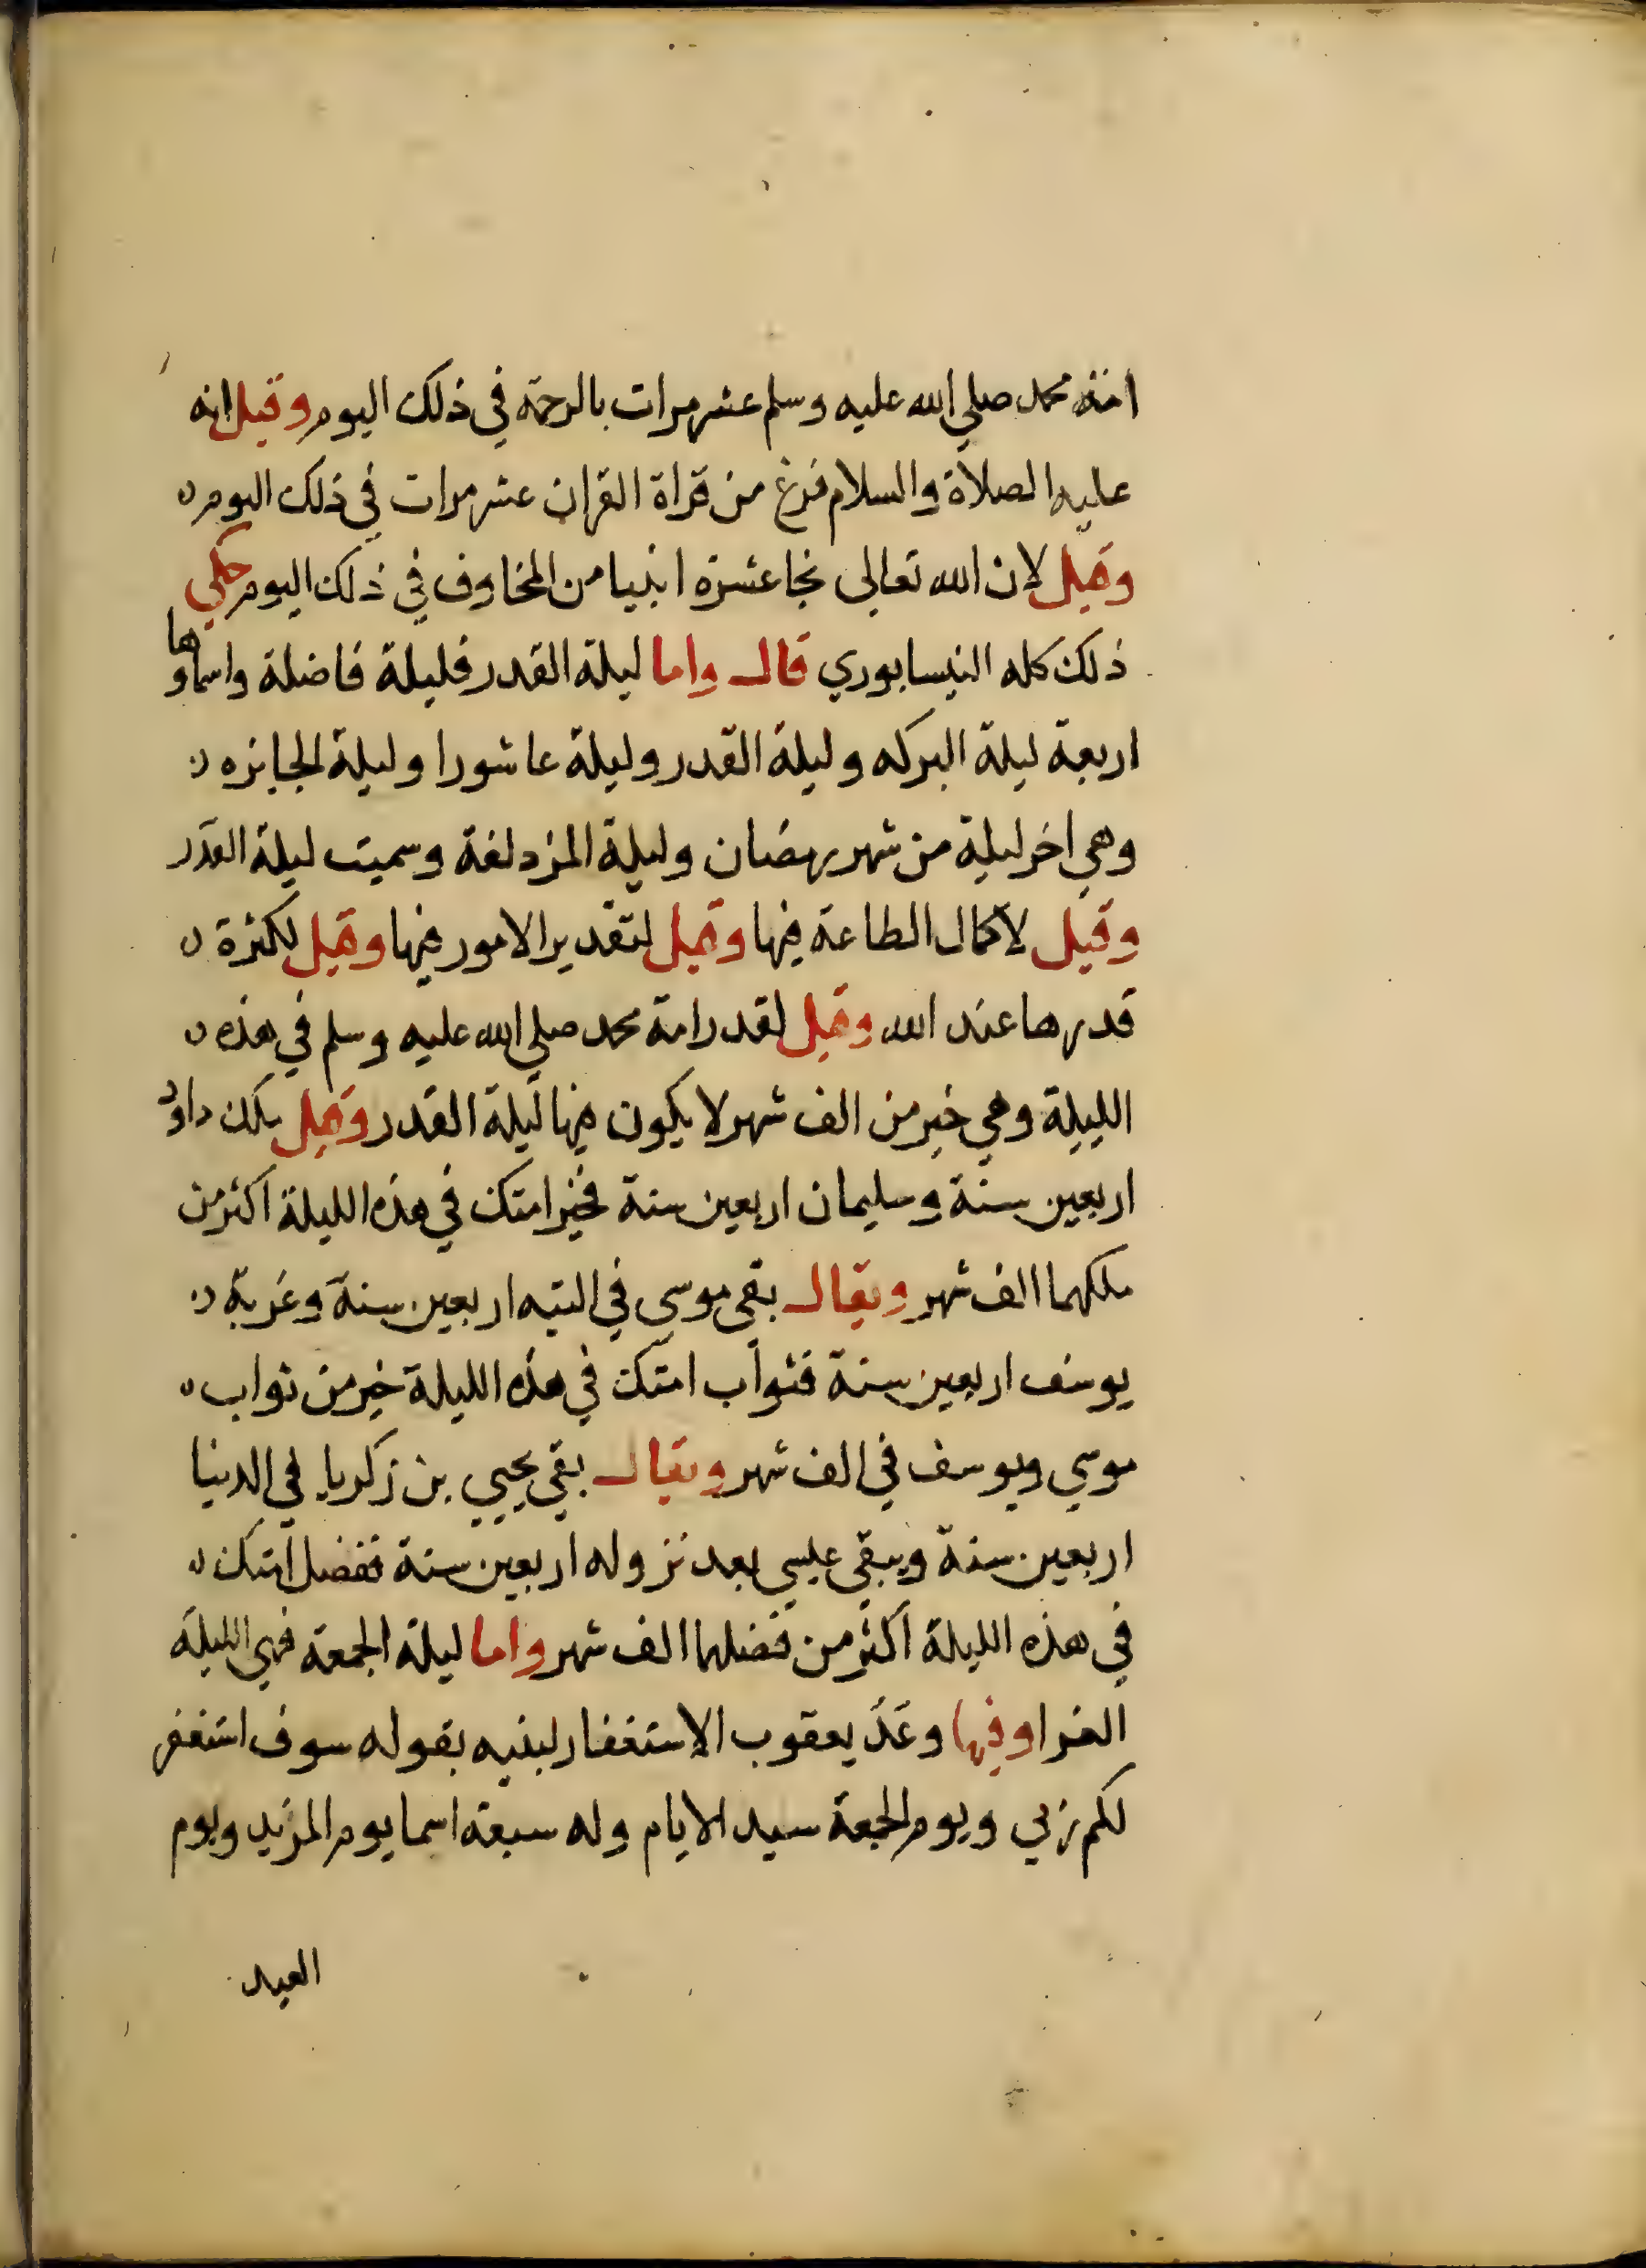 امنه محمد صلي الله عليه وسلم عشر مرات بالرحمة في ذلك اليوم وقيل انه
عليه الصلاة والسلام فرغ من قراة القران عشر مرات في ذلك اليوم
وقيل لان الله تعالى نجا عشرة انبيا من المخاوف في ذلك اليوم حكي
ذلك كله النيسابوري قال واما ليلة القدر فليلة فاضلة واسماوها
اربعة ليلة البركه وليلة القدر وليلة عاشورا وليلة الجايزه
وهي اخر ليلة من شهر رمضان وليلة المزدلفة وسميت ليلة القدر
وقيل لاكمال الطاعة فيها وقيل لتقدير الامور فيها وقيل لكثرة
قدرها عند الله وقيل لقدر امة محمد صلي الله عليه وسلم في هذه
الليلة وهي خير من الف شهر لا يكون فيها ليلة القدر وقيل ملك داود
اربعين سنة وسليمان اربعين سنة فخير امتك في هذه الليلة اكثر من
ملكهما الف شهر ويقال بقى موسي في التيه اربعين سنة وغربة
يوسف اربعين سنة فثواب امتك في هذه الليلة خير من ثواب
موسي ويوسف في الف شهر ويقال بقي يحيي بن زكريا في الدنيا
اربعين سنة ويبقي عيسي بعد نزوله اربعين سنة ففضل امتك
في هذه الليلة اكثر من فضلهما الف شهر واما ليلة الجمعة فهي الليلة
الغرا وفيها وعد يعقوب الاستغفار لبنيه بقوله سوف استغفر
لكم ربي ويوم الجمعة سيد الايام وله سبعة اسما يوم المزيد ويوم
العيد